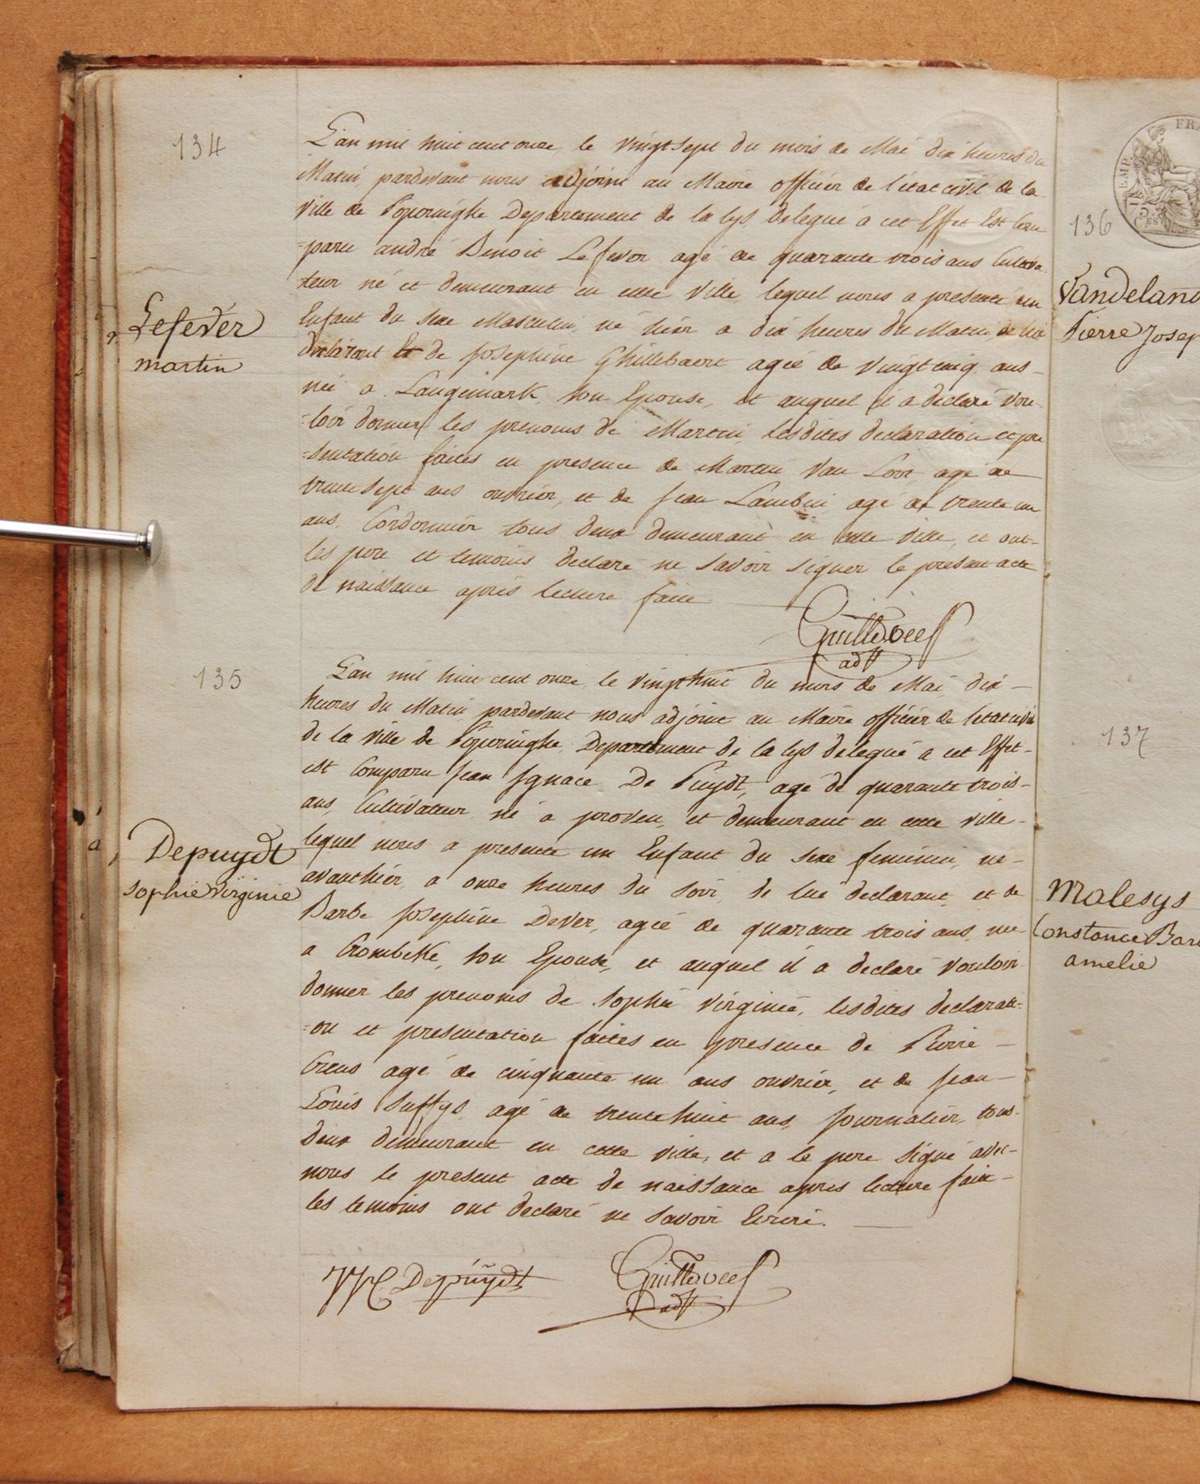 134
L'an mil huit cent onze le vingt sept du mois de Mai dix heures du
Matin, pardevant nous adjoint au Maire officier de l'état civil de la
Ville de Poperinghe Departement de la Lys delegué a cet Effet Est Com
=paru andré Benoit Lefever agé de quarante trois ans Cultiva
teur né et demeurant en cette Ville lequel nous a presenté un
Enfant du sexe Masculin, né hier a dix heures du Matin, de lui
déclarant Et de Josephine Ghillebaert agée de vingt cinq ans
née a Langemark, son Epouse, et auquel il a déclaré vou
=loir donner les prenoms de Martin, lesdites declaration et pre
=sentation faites en presence de Martin Van Loot agé de
trente sept ans ouvrier, et de Jean Lambin agé de trente un
ans, Cordonnier tous deux demeurant en cette ville, et ont
les pere et temoins declare ne Savoir signer le present acte
de naissance après lecture faite
Lefever
martin
adjt
135
L'an mil huit cent onze le vingt huit du mois de Mai dix
heures du Matin pardevant nous adjoint au Maire officier de letat civil
de la ville de Poperinghe, Departement de la Lys delegué a cet Effet
est Comparu Jean Ignace De Puydt, agé de quarante trois
ans, Cultivateur né a proven, et demeurant en cette ville
lequel nous a presenté un Enfant du sexe feminin, né
avanthier, a onze heures du soir, de lui declarant, et de
Barbe Josephine Dever, agée de quarante trois ans, née
a Crombeke, son Epouse, et auquel il a declaré vouloir
donner les prenoms de Sophie Virginie, lesdites declarati
=on et presentation faites en presence de Pierre
agé de cinquante un ans ouvrier, et de Jean
Louis Suffys, agé de trente huit ans, journalier, tous
deux demeurant en cette ville, et a le pere signé avec
nous le present acte de naissance après lecture faite
les temoins ont declaré ne Savoir Ecrire.
Depuydt
sophie Virginie
Depuydt
adjt
136
Pierre Josep
137
Malesys
Constance Bar
amelie